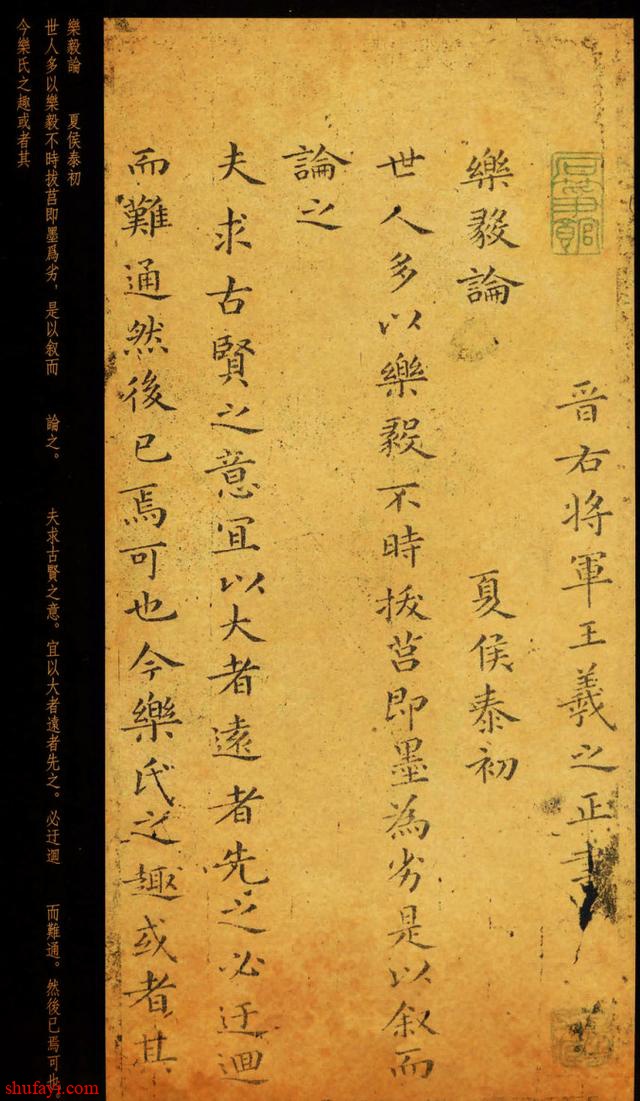 晉右將軍王羲之正書
樂毅論 夏侯泰初
世人多以樂毅不時拔莒即墨為劣是以叙而
論之
夫求古賢之意宜以大者遠者先之必迂迴
而難通然後已焉可也今樂氏之趣或者其
樂毅論 夏侯泰初
世人多以樂毅不時拔莒即墨爲劣,是以叙而 論之。 夫求古賢之意。宜以大者遠者先之。必迂迴 而難通。然後已焉可也。
今樂氏之趣或者其
shufayi.com